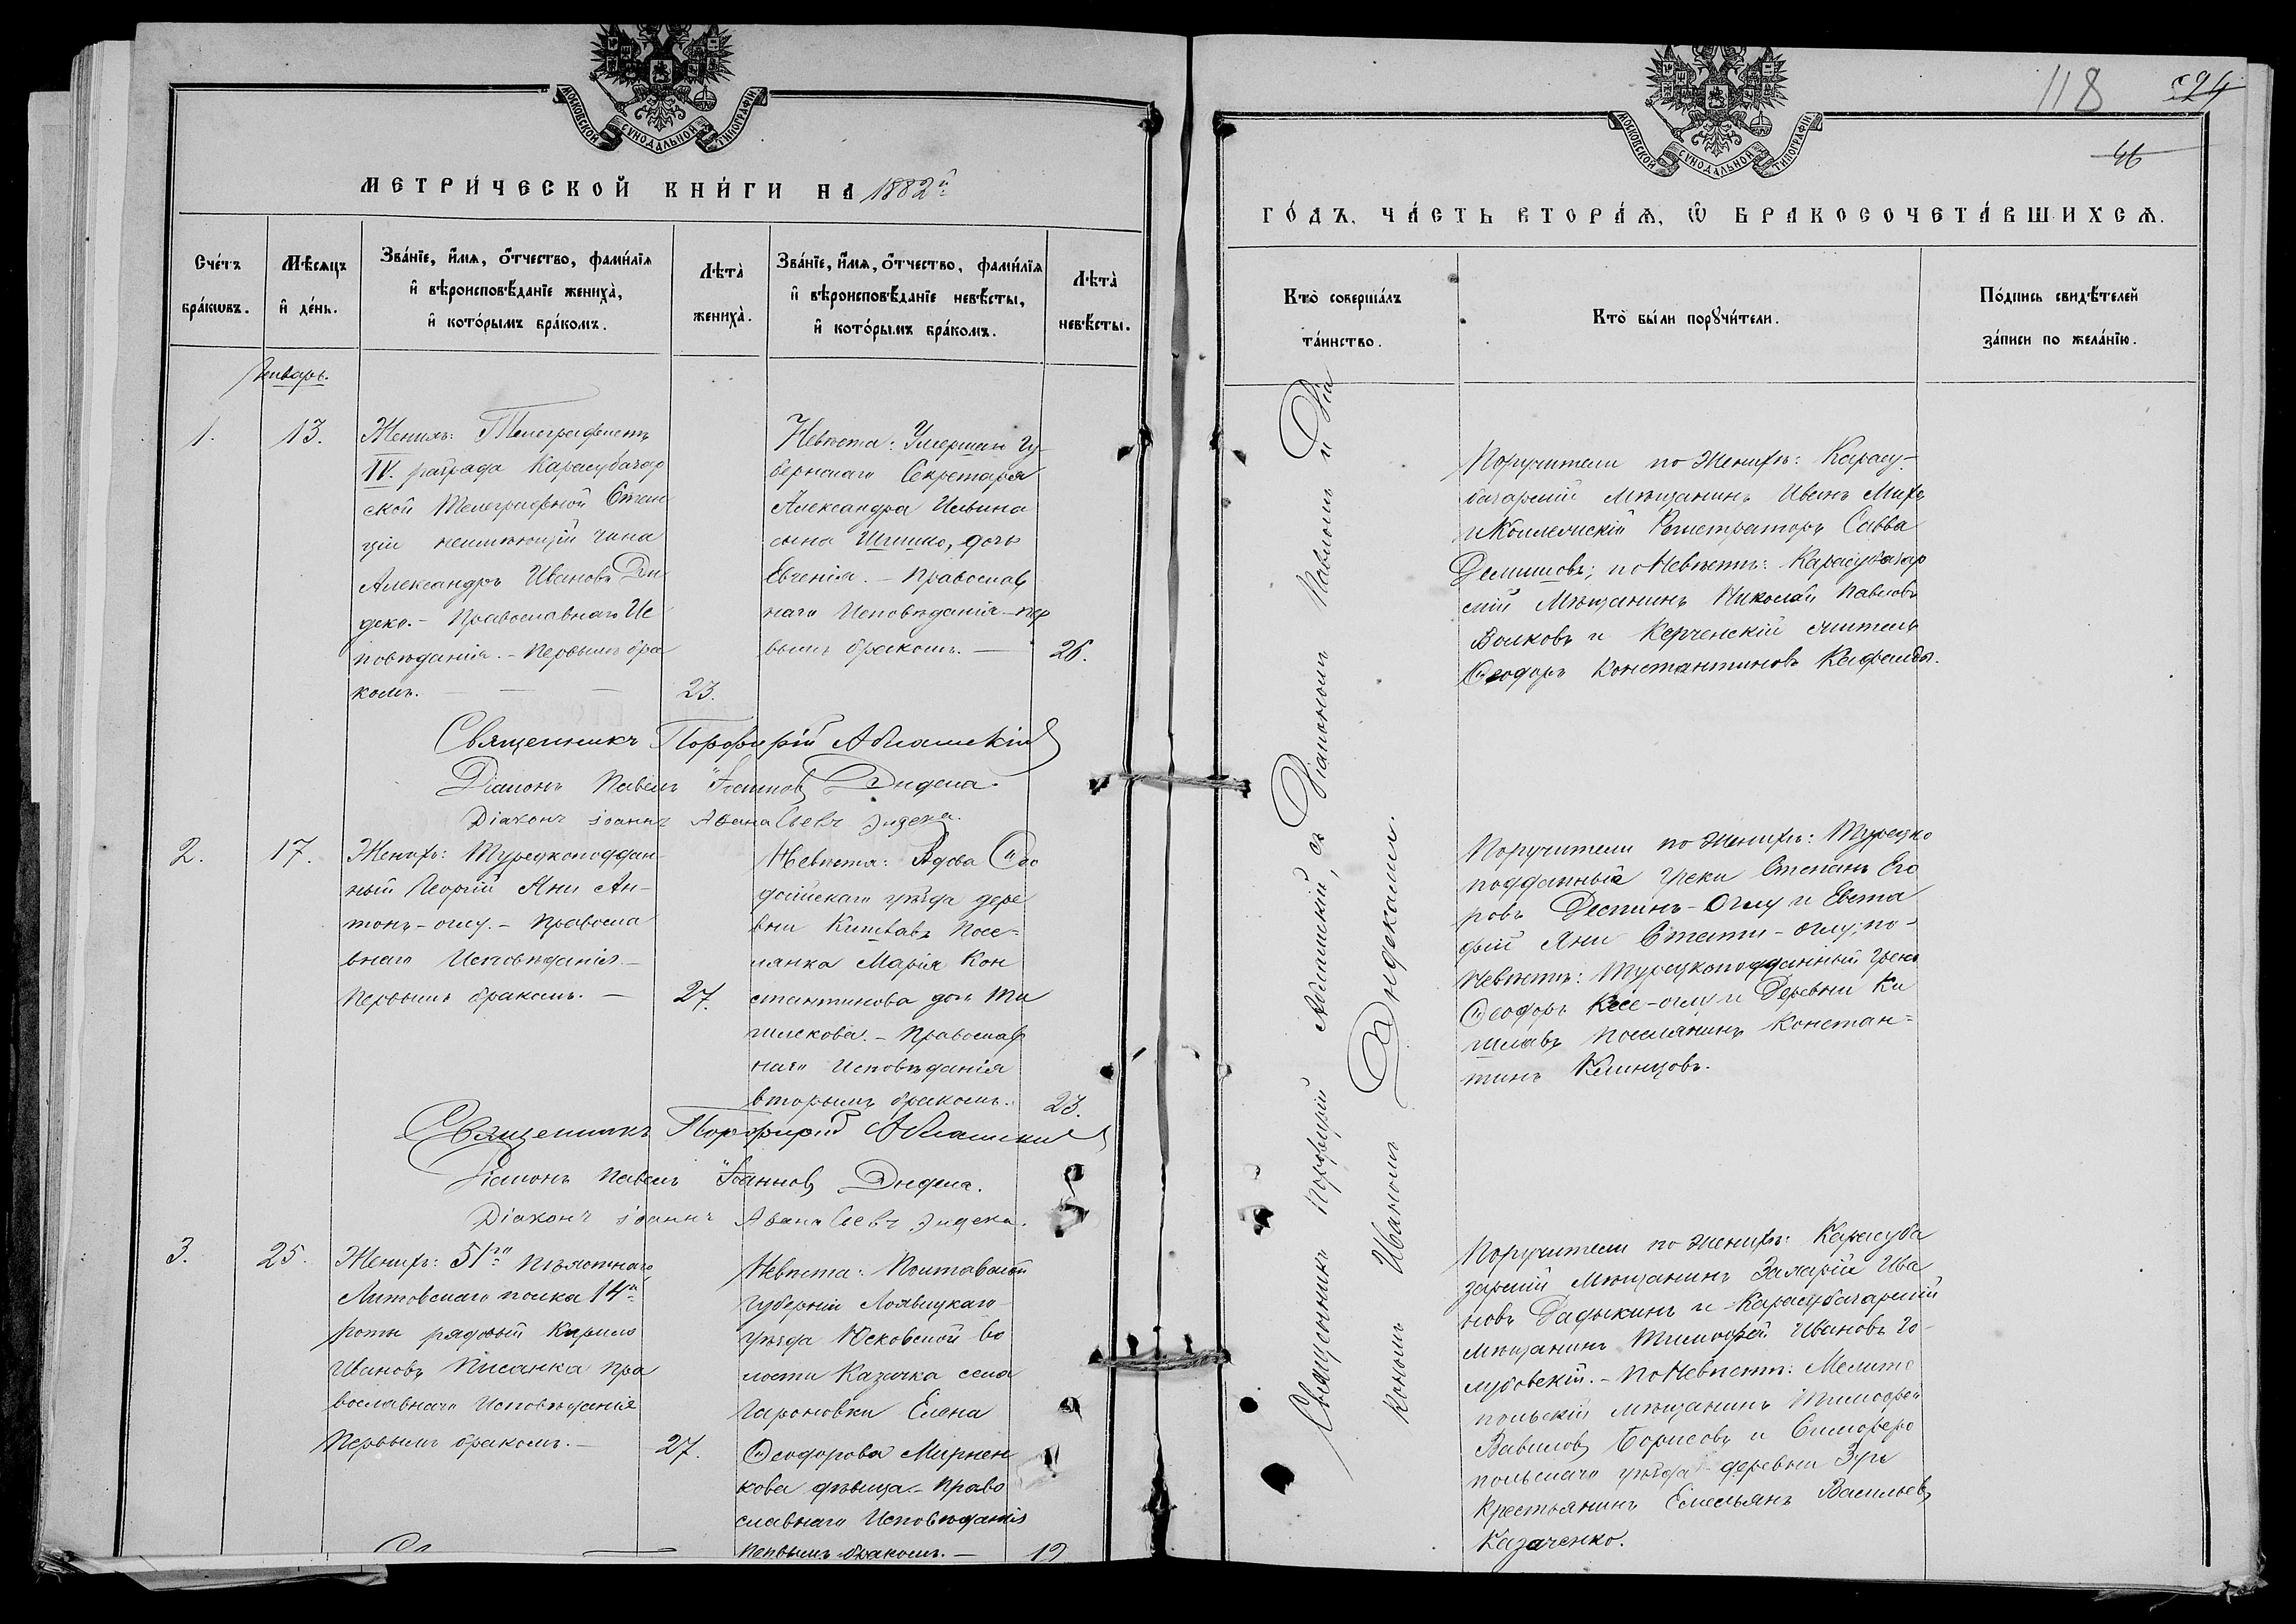 МОСКОВСКОЙ СУНОДАЛЬНОЙ ТИПОГРАФІИ
МЕТРИ́ЧЕСКОЙ КНИ́ГИ НА 1882й
Сче́тъ
бра́кѡвъ.
Мѣ́сяцъ
и҆ де́нь.
Зва́нїе, и҆́мѧ, ѻ҆́тчество, фами́лїѧ
и҆ вѣроисповѣ́данїе жениха̀,
и҆ кото́рымъ бра́комъ.
Лѣта̀
жениха̀.
Зва́нїе, и҆́мѧ, ѻ҆́тчество, фами́лїѧ
и҆ вѣроисповѣ́данїе невѣ́сты,
и҆ кото́рымъ бра́комъ.
Лѣта̀
невѣ́сты.
Январь.
1.
13.
Женихъ: Телеграфистъ
IV. разряда Карасубазар
ской Телеграфной Стан
ціи неимѣющій чина
Александръ Ивановъ Ди
дека. – Православнаго Ис
повѣданія. – Первымъ бра
комъ.
23.
Невѣста: Умершаго Гу
бернскаго Секретаря
Александра Ильина
сына Шишко, дочь
Евгенія. – Православ
наго Исповѣданія – пер
вымъ бракомъ. –
26.
Священникъ Порфирій Аблашскій
Діаконъ Павелъ Іоанновъ Дидека.
Діаконъ Іоаннъ Аѳанасьевъ Эндека.
2.
17.
Женихъ: Турецкоподдан
ный Георгій Яни Ан-
тонъ-оглу. – Правосла
внаго Исповѣданія. –
Первымъ бракомъ. –
27.
Невѣста: Вдова Ѳео
досійскаго уѣзда дере
вни Кишлавъ Посе=
лянка Марія Кон
стантинова дочь
Православ
наго Исповѣданія
вторымъ бракомъ.
23.
Священникъ Порфирій Аблашскій
Діаконъ Павелъ Іоанновъ Дидека.
Діаконъ Іоаннъ Аѳанасьевъ Эндека.
3.
25.
Женихъ: 51го Пѣхотнаго
Литовскаго полка 14й
роты рядовый Кирилъ
Ивановъ Писанка Пра
вославнаго Исповѣданія
Первымъ бракомъ. –
27.
Невѣста: Полтавской
Губерніи Лохвицкаго
уѣзда Юсковской во
лости Казачка села
Елена
Ѳеодорова Мирнен
кова дѣвица. – Право
славнаго Исповѣданія
Первымъ бракомъ. –
19
118
46
МОСКОВСКОЙ СУНОДАЛЬНОЙ ТИПОГРАФІИ
ГО́ДЪ, ЧА́СТЬ ВТОРА́Ѧ, Ѡ҆ БРАКОСОЧЕТА́ВШИХСѦ.
Кто̀ соверша́лъ
та́инство.
Кто̀ бы́ли порꙋчи́тели.
По́дпись свидѣ́телей
за́писи по жела́нїю.
Священникъ Порфирій Аблашскій, съ Діакономъ Павломъ и Діа
кономъ Иваномъ Эндеками.
Поручители по Женихѣ: Карасу-
базарскій Мѣщанинъ Иванъ
и Коллежскій Регистраторъ Савва
по Невѣстѣ: Карасубазар
скій Мѣщанинъ Николай Павловъ
Волковъ и Керченскій
Ѳеодоръ Константиновъ
Поручители по Женихѣ: Турецко
подданный Греки Степанъ Его
ровъ Деспинъ-Оглу и Евста
фій Яни Стати-оглу; по-
Невѣстѣ: Турецкоподданный Грекъ
Ѳеодоръ Кесе-оглу и Деревни Ки
шлавъ Поселянинъ Констан=
тинъ Клинцовъ.
Поручители по Женихѣ: Карасуба
зарскій Мѣщанинъ Захарій Ива
новъ Дадыкинъ и Карасубазарскій
Мѣщанинъ Тимофей Ивановъ Го-
лубовскій. – По Невѣстѣ: Мелито
польскій Мѣщанинъ Тимофей
Вавиловъ Борисовъ и Симферо
польскаго уѣзда деревни Зуи
Крестьянинъ Емельянъ Васильевъ
Казаченко.